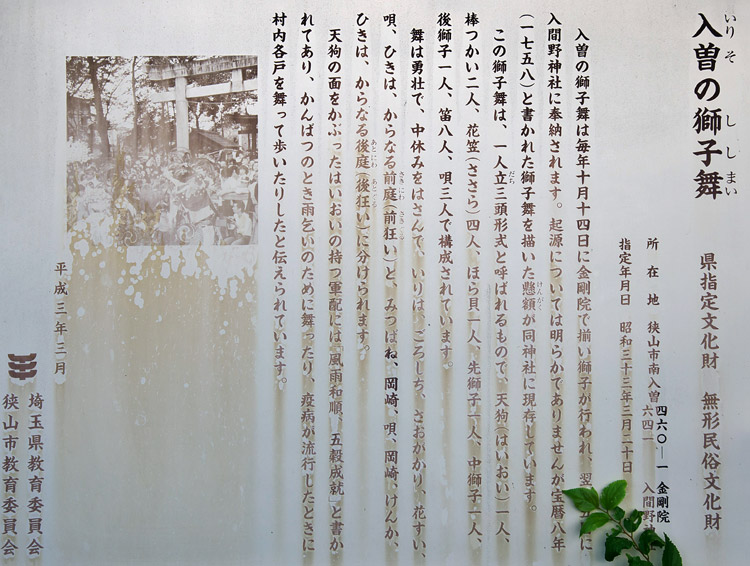 入曽の獅子舞
いりそ ししまい
県指定文化財 無形民俗文化財
所在地 狭山市南入曽
四六〇―一 金剛院
六四一 入間野神
指定年月日 昭和三十三年三月二十日
入曽の獅子舞は毎年十月十四日に金剛院で揃い獅子が行われ、翌
入間野神社に奉納されます。起源については明らかでありませんが宝暦八年
(一七五八)と書かれた獅子舞を描いた懸額が同神社に現存しています。
けんがく
この獅子舞は、一人立三頭形式と呼ばれるもので、天狗(はいおい)一人、
だち
棒つかい二人、花笠(ささら)四人、ほら貝一人、先獅子一人、中獅子一人、
後獅子一人、笛八人、唄三人で構成されています。
舞は勇壮で、中休みをはさんで、いりは、ごろしち、さおかかり、花すい、
唄、ひきは、からなる前庭(前狂い)と、みつばね、岡崎、唄、岡崎、けんか、
さきにわ
ひきは、からなる後庭(後狂い)に分けられます。
あとにわ
天狗の面をかぶったはいおいの持つ軍配には「風雨和順、五穀成就」と書か
れてあり、かんばつのとき雨乞いのために舞ったり、疫病が流行したときに
村内各戸を舞って歩いたりしたと伝えられています。
平成三年三月
埼玉県教育委員会
狭山市教育委員会